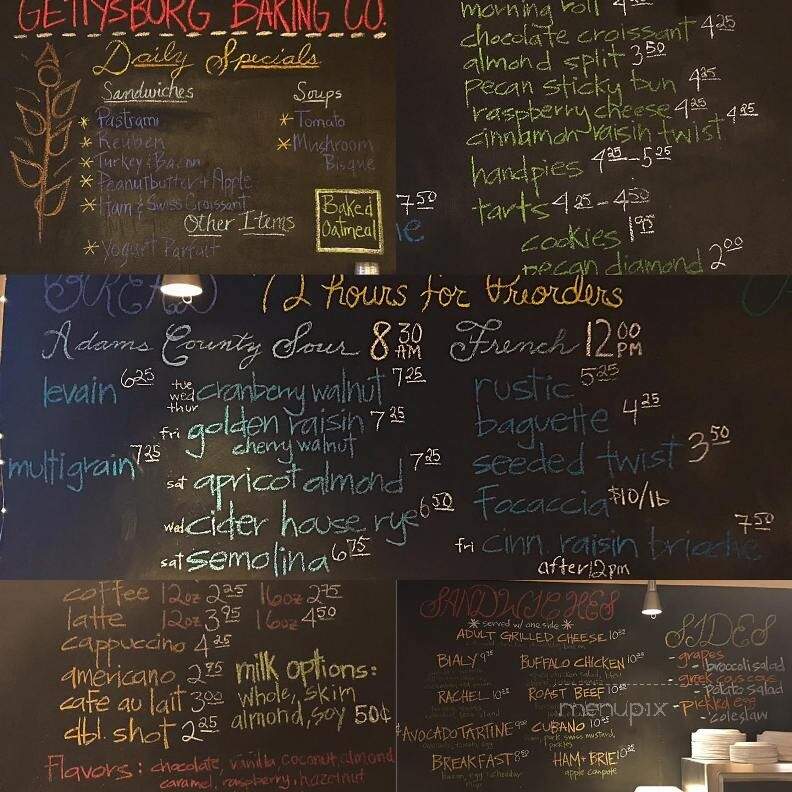 GETTYSBURG BAKING CO.
Daily Specials
Sandwiches
* Pastrami
* Reuben
* Turkey & Bacon
* Peanutbutter + Apple
* Ham & Swiss Croissant
Soups
* Tomato
* Mushroom
Bisque
Other Items
* Yogurt Parfait
Baked
Oatmeal
morning roll
chocolate croissant 4 25
almond split 3 50
pecan sticky bun 4 25
raspberry cheese 4 25
cinnamon raisin twist 4 25
handpies 4 25 - 5 25
tarts 4 25 - 4 50
cookies 1 95
pecan diamond 2 00
7 50
BREAD
72 hours for Preorders
Adams County Sour 8 30 AM
levain 6 25
multigrain 7 25
tue wed thur cranberry walnut 7 25
fri golden raisin 7 25
cherry walnut
sat apricot almond 7 25
wed cider house rye 6 50
sat semolina 6 75
French 12 00 PM
rustic 5 25
baguette 4 25
seeded twist 3 50
Focaccia $10/lb
fri cinn raisin brioche 7 50
after 12pm
coffee 12oz 2 25 16oz 2 75
latte 12oz 3 95 16oz 4 50
cappuccino 4 25
americano 2 75
cafe au lait 3 00
dbl. shot 2 25
milk options:
whole, skim
almond, soy 50¢
Flavors: chocolate, vanilla, coconut, almond
caramel, raspberry, hazelnut
SANDWICHES
* served w/ one side *
ADULT GRILLED CHEESE
BIALY
RACHEL
AVOCADO TARTINE
BREAKFAST 8 50
bacon, egg, cheddar
BUFFALO CHICKEN
ROAST BEEF
CUBANO
pork, swiss, mustard,
pickles
HAM + BRIE
apple compote
SIDES
- grapes
- broccoli salad
- greek cous cous
- potato salad
- pickled egg
- coleslaw
menupix